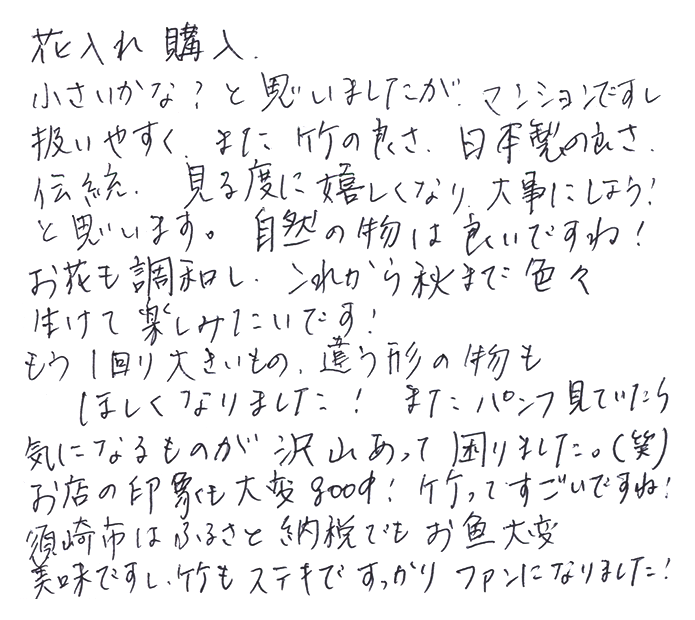 花入れ 購入.
小さいかな？と思いましたが、マンションですし
扱いやすく、また 竹の良さ、日本製の良さ、
伝統、見る度に嬉しくなり、大事にしよう！
と思います。自然の物は良いですね！
お花も調和し、これから秋まで色々
生けて楽しみたいです！
もう1回り大きいもの、違う形の物も
ほしくなりました！ またパンフ見ていたら
気になるものが沢山あって困りました。(笑)
お店の印象も大変good！竹ってすごいですね！
須崎市はふるさと納税でもお魚大変
美味ですし、竹もステキですっかりファンになりました！